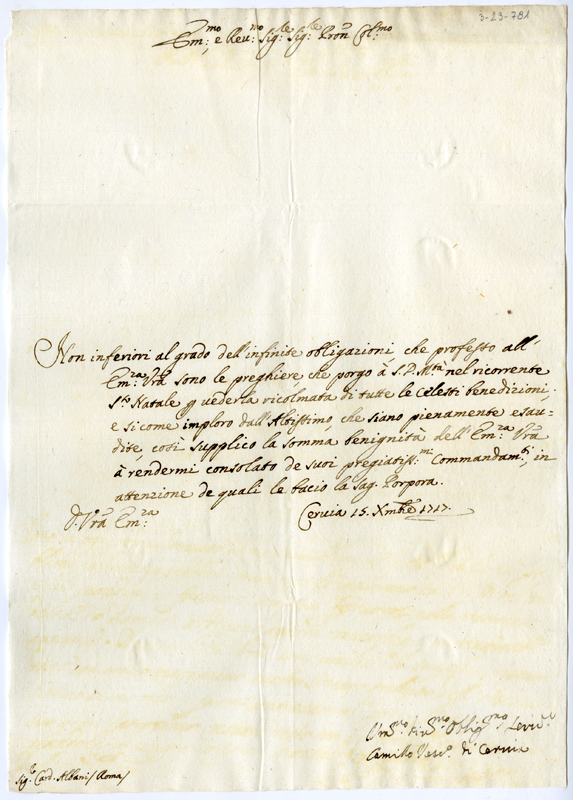 3-23-781
Em:mo, e Reu:mo Sig:re Sig:re Pron Col:mo
Non inferiori al grado dell'infinite obligazioni, che professo all'
Em:za Vra sono le preghiere, che porgo à S. D. Mtà nel ricorrente
Sto Natale p vederla ricolmata di tutte le Celesti benedizioni;
e si come imploro dall'Altissimo, che siano pienamente esau-
dite, così supplico la somma benignità dell'Em:za Vra
à rendermi consolato de suoi pregiatiss:mi Commandam:ti, in
attenzione de quali le bacio la Sag. Porpora.
D. Vra Em:za
Ceruia 15. Xmbre 1717.
Obligmo
Camillo Vesco di Ceruia
Sig:re Card. Albani / Roma /